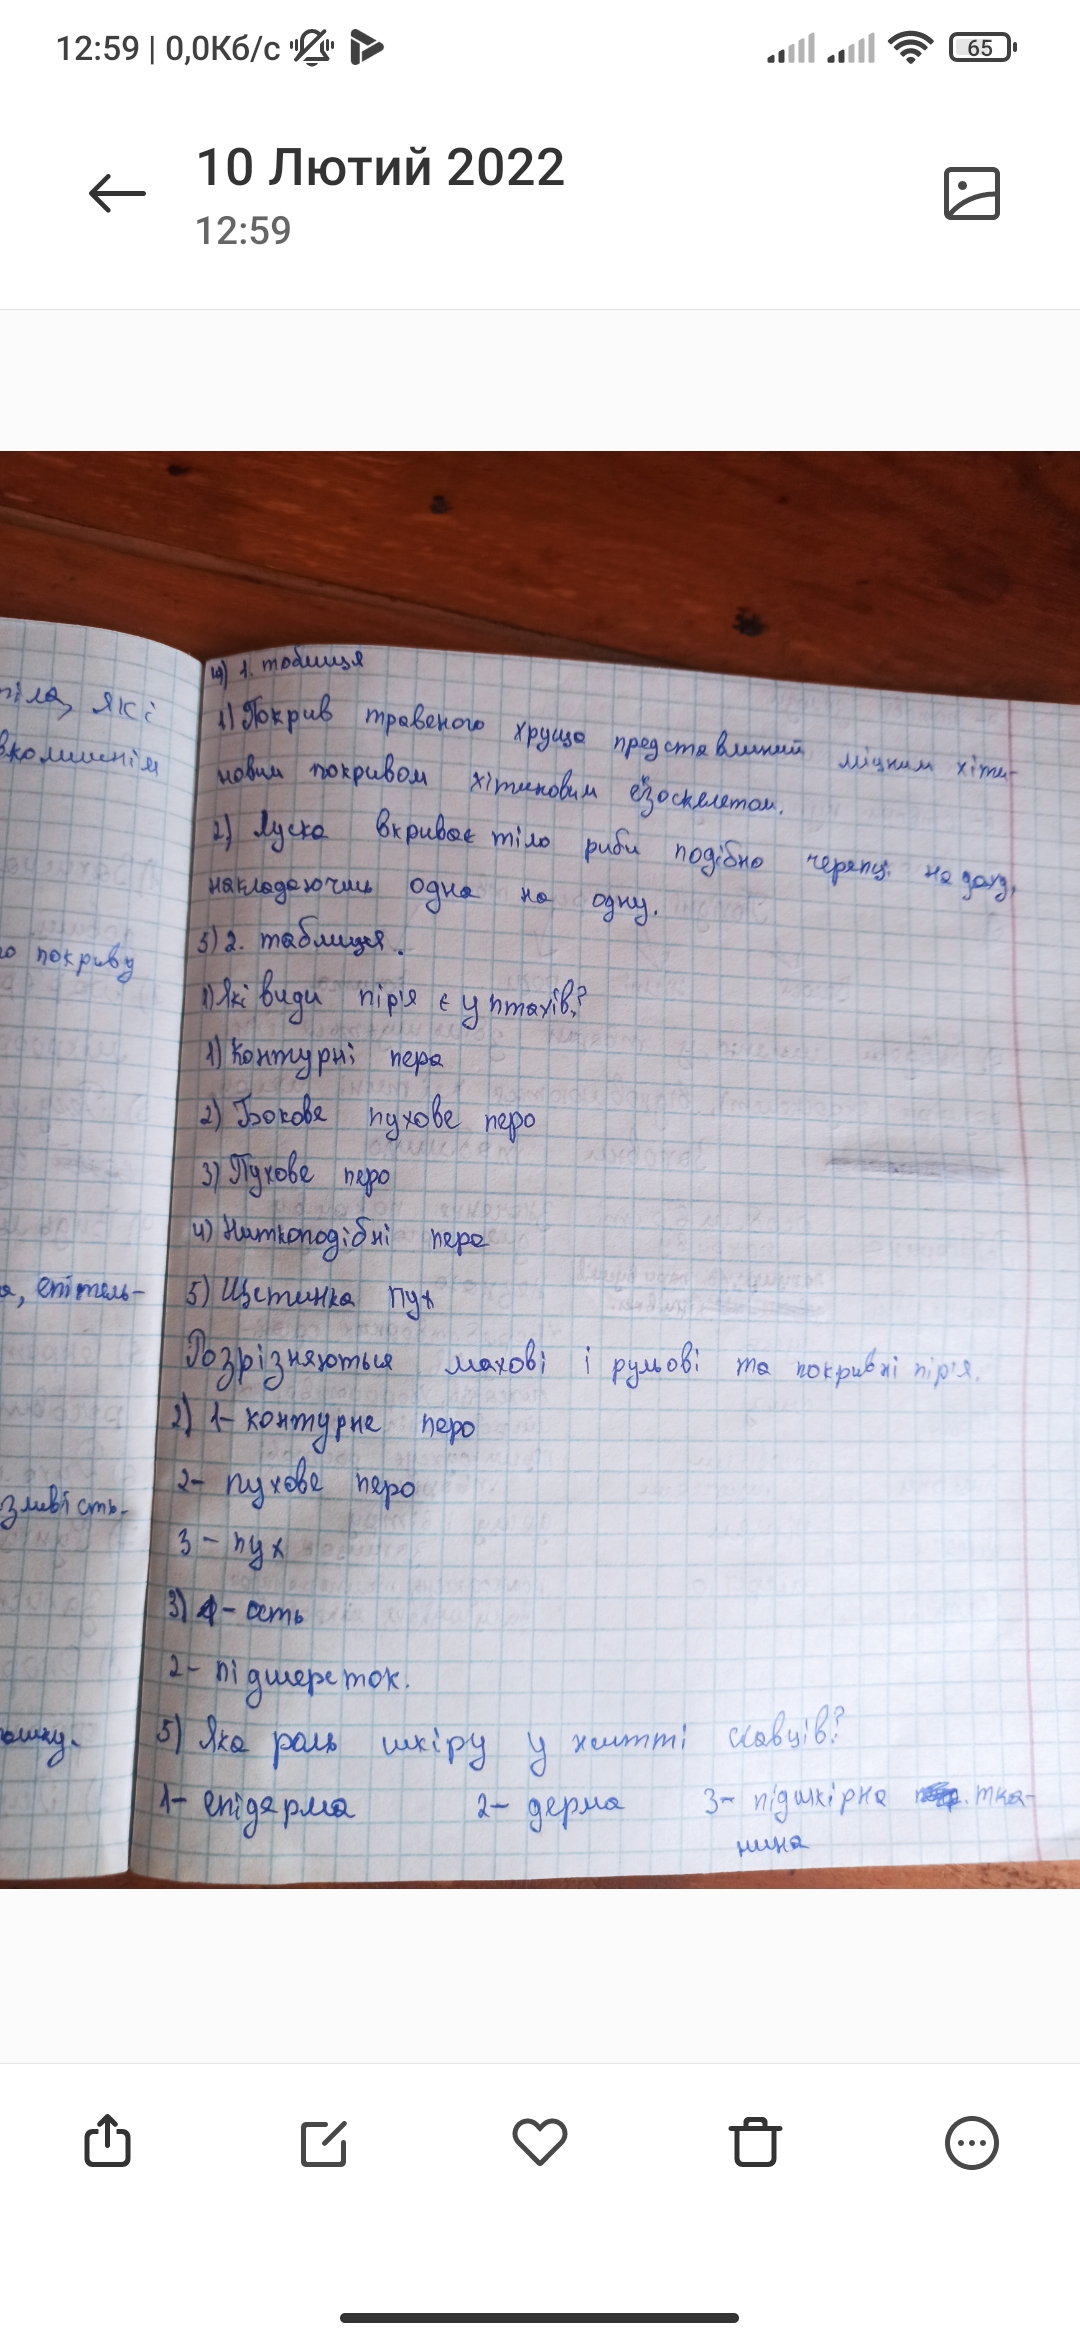 12:59 | 0,0Кб/с
65
10 Лютий 2022
12:59
4) 1. таблиця
1) Покрив травеного хруща представлиний міцним хіти-
новим покривом хітиновим екзоскелетом.
2) Луска вкриває тіло риби подібно черепці на даху,
накладаючись одна на одну.
5) 2. таблиця.
1) Які види пір'я є у птахів?
1) Контурні пера
2) Бокове пухове перо
3) Пухове перо
4) Ниткоподібні пера
5) Щетинка пух
Розрізняються махові і рульові та покривні пір'я.
2) 1- контурне перо
2- пухове перо
3 - пух
3) 1- ость
2- підшерсток.
5) Яка роль шкіру у житті ссавців?
1- епідерма 2- дерма 3- підшкірна тка-
нина
тіла, які
о покриву
а, епітель-
зливість.